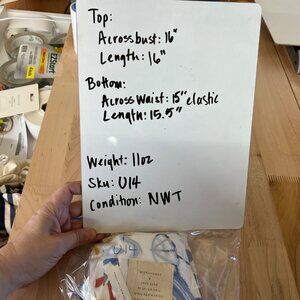 Top:
Across bust: 16"
Length: 16"
Bottom:
Across Waist: 15" elastic
Length: 15.5"
Weight: 11oz
Sku: U14
Condition: NWT
U14
EZStart